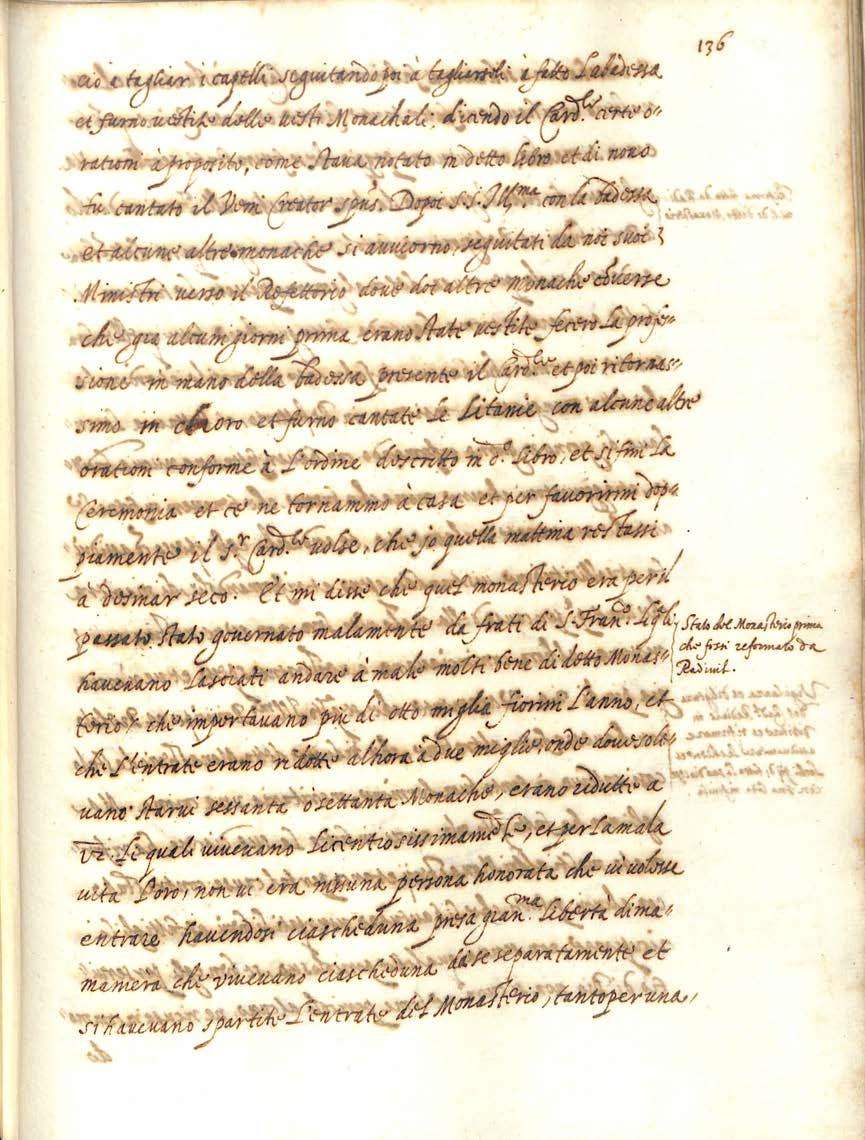 136
ciò a tagliar i capelli seguitando poi à tagliarseli à fatto L'abadessa
et furno vestite delle vesti Monachali: dicendo il Card.le certe o-
rationi à proposito, come stava notato in detto libro et di novo
fu cantato il Veni Creator Spus. Dopoi S.S. Ill.ma con la badessa
et alcune altre monache si avviorno, seguitati da noi suoi
Ministri verso il Refettorio dove doi altre monache converse
che già alcuni giorni prima erano state vestite fecero la profes-
sione in mano della badessa presente il Card.le et poi ritornas-
simo in choro et furno cantate le Litanie con alcune altre
orationi conforme à L'ordine descritto in d.o libro, et si finì la
Ceremonia et ce ne tornammo à casa et per favorirmi dop-
piamente il S.r Card.le volse, che jo quella mattina restassi
à desinar seco. Et mi disse che quel monasterio era per il
passato stato governato malamente da frati di S. Fran.o Li q.li
havevano lasciati andare à male molti bene di detto Monas-
terio, che importavano più di otto miglia fiorini L'anno, et
che L'entrate erano ridotte alhora à due miglie, onde dove sole-
vano starvi sessanta ò settanta Monache, erano ridutte a
VI. Le quali vivevano licentiosissimame.te, et per la mala
vita loro, non vi era nisuna persona honorata che vi volesse
entrare havendosi ciascheduna presa gran.ma libertà di ma-
maniera che vivevano ciascheduna da se separatamente et
si havevano spartite L'entrate del Monasterio, tanto per una,
Stato del Monasterio prima
che fossi reformato da
Radivil.